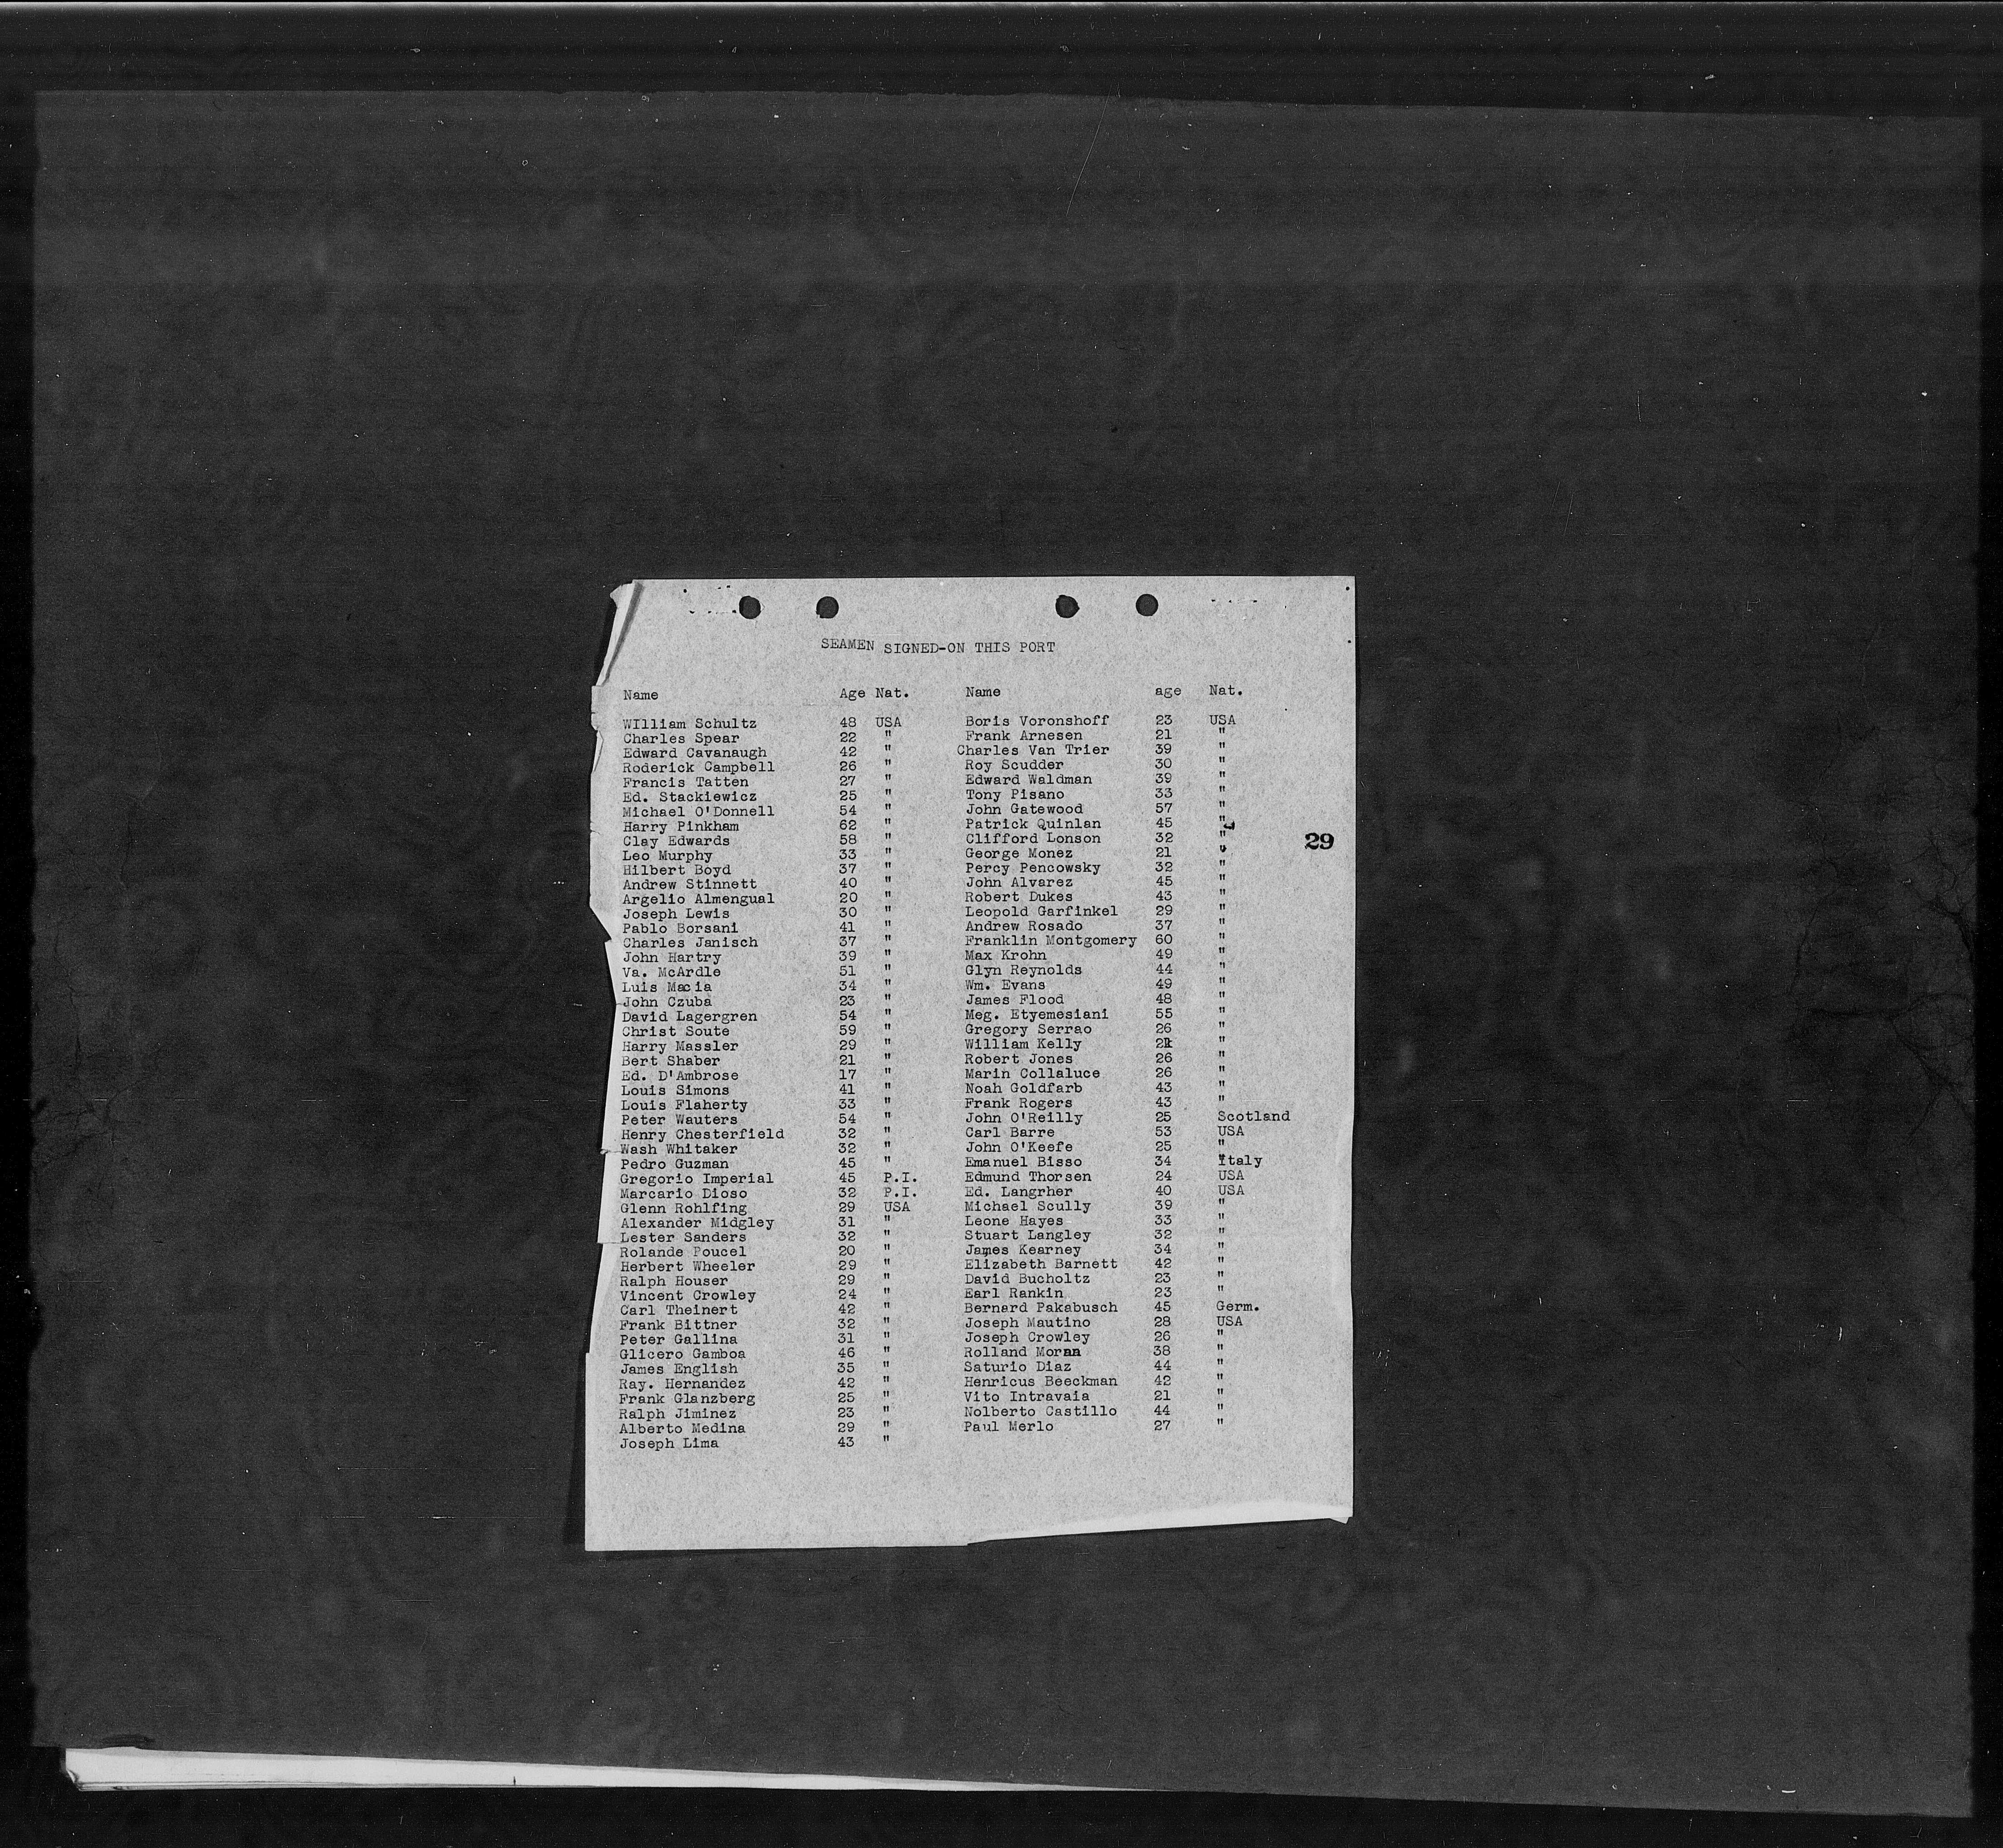 SEAMEN SIGNED-ON THIS PORT
Name Age Nat. Name age Nat.
WIlliam Schultz 48 USA Boris Voronshoff 23 USA
Charles Spear 22 " Frank Arnesen 21 "
Edward Cavanaugh 42 " Charles Van Trier 39 "
Roderick Campbell 26 " Roy Scudder 30 "
Francis Tatten 27 " Edward Waldman 39 "
Ed. Stackiewicz 25 " Tony Pisano 33 "
Michael O'Donnell 54 " John Gatewood 57 "
Harry Pinkham 62 " Patrick Quinlan 45 "
Clay Edwards 58 " Clifford Lonson 32 "
29
Leo Murphy 33 " George Monez 21 "
Hilbert Boyd 37 " Percy Pencowsky 32 "
Andrew Stinnett 40 " John Alvarez 45 "
Argelio Almengual 20 " Robert Dukes 43 "
Joseph Lewis 30 " Leopold Garfinkel 29 "
Pablo Borsani 41 " Andrew Rosado 37 "
Charles Janisch 37 " Franklin Montgomery 60 "
John Hartry 39 " Max Krohn 49 "
Va. McArdle 51 " Glyn Reynolds 44 "
Luis Macia 34 " Wm. Evans 49 "
John Czuba 23 " James Flood 48 "
David Lagergren 54 " Meg. Etyemesiani 55 "
Christ Soute 59 " Gregory Serrao 26 "
Harry Massler 29 " William Kelly "
Bert Shaber 21 " Robert Jones 26 "
Ed. D'Ambrose 17 " Marin Collaluce 26 "
Louis Simons 41 " Noah Goldfarb 43 "
Louis Flaherty 33 " Frank Rogers 43 "
Peter Wauters 54 " John O'Reilly 25 Scotland
Henry Chesterfield 32 " Carl Barre 53 USA
Wash Whitaker 32 " John O'Keefe 25 "
Pedro Guzman 45 " Emanuel Bisso 34 Italy
Gregorio Imperial 45 P.I. Edmund Thorsen 24 USA
Marcario Dioso 32 P.I. Ed. Langrher 40 USA
Glenn Rohlfing 29 USA Michael Scully 39 "
Alexander Midgley 31 " Leone Hayes 33 "
Lester Sanders 32 " Stuart Langley 32 "
Rolande Poucel 20 " James Kearney 34 "
Herbert Wheeler 29 " Elizabeth Barnett 42 "
Ralph Houser 29 " David Bucholtz 23 "
Vincent Crowley 24 " Earl Rankin 23 "
Carl Theinert 42 " Bernard Pakabusch 45 Germ.
Frank Bittner 32 " Joseph Mautino 28 USA
Peter Gallina 31 " Joseph Crowley 26 "
Glicero Gamboa 46 " Rolland Moran 38 "
James English 35 " Saturio Diaz 44 "
Ray. Hernandez 42 " Henricus Beeckman 42 "
Frank Glanzberg 25 " Vito Intravaia 21 "
Ralph Jiminez 23 " Nolberto Castillo 44 "
Alberto Medina 29 " Paul Merlo 27 "
Joseph Lima 43 "